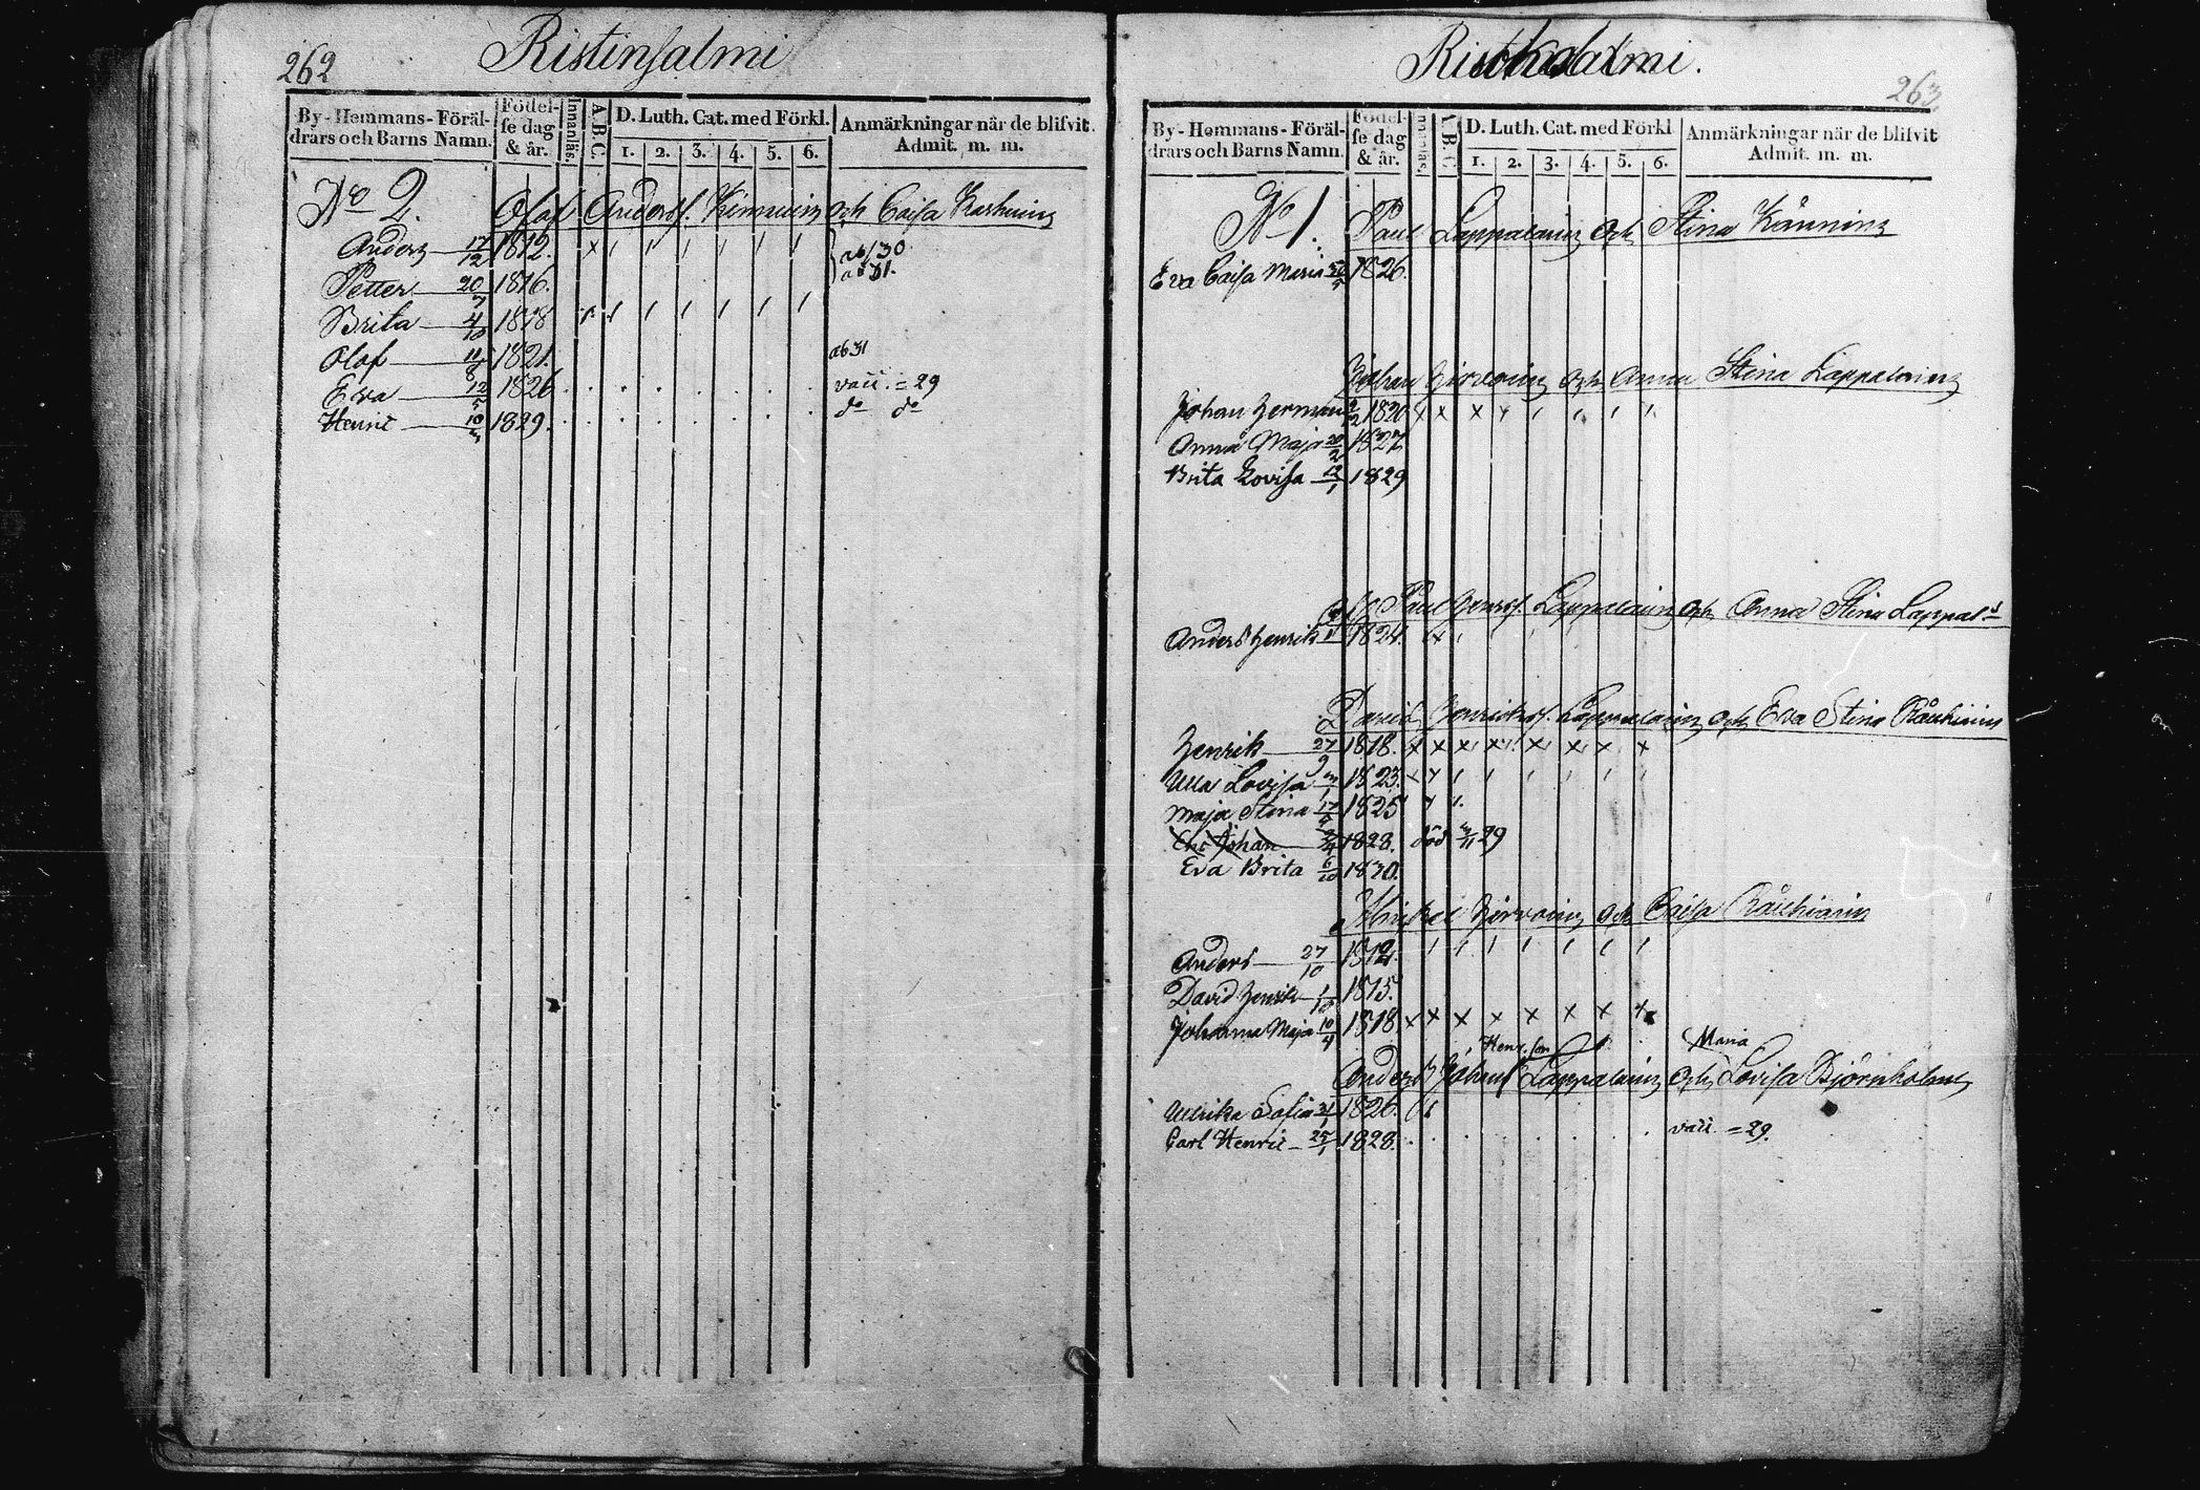 262
Ristinsalmi
By-Hemmans-Föräl-
drars och Barns Namn.
Födel-
se dag
& år.
Innanläs.
A.B.C.
D. Luth. Cat. med Förkl.
1. 2. 3. 4. 5. 6.
Anmärkningar när de blifvit
Admit. m. m.
No 2. Olof Andersf. och Caisa
Anders 17/12 1812. ab/30
Petter 20/7 1816. ab 31.
Brita 4/10 1818
Olof 1821. ab 31
Eva 12/5 1826 vacc. = 29
Henric 10/3 1829. do do
263
By-Hemmans-Föräl-
drars och Barns Namn.
Födel-
se dag
& år.
Innanläs.
A.B.C.
D. Luth. Cat. med Förkl
1. 2. 3. 4. 5. 6.
Anmärkningar när de blifvit
Admit. m. m.
No 1. Paul Lappalain och Stina
Eva Caisa Maria 1826.
Johan Hirvoin och Anna Stina Lappalain
Johan Herman 1820
Anna Maja 20/2 1827
Brita Lovisa 12/1 1829
Paul Henrsf. Lappalain och Anna Stina Lappal
Anders Henrik 1824.
David Henriksf. Lappalain och Eva Stina
Henrik 27/9 1818.
Ulla Lovisa 1823.
Maja Stina 17/4 1825
Johan 1828. död 29
Eva Brita 6/10 1830.
Mickel Hirvoin och Caisa
Anders 27/10 1812.
David Henrik 1815.
Johanna Maja 10/4 1818
Henr. son Maria
Anders Johan Lappalain och Lovisa Björnholm
Ullrika Sofia 1826.
Carl Henric 25/1 1828. vacc. = 29.